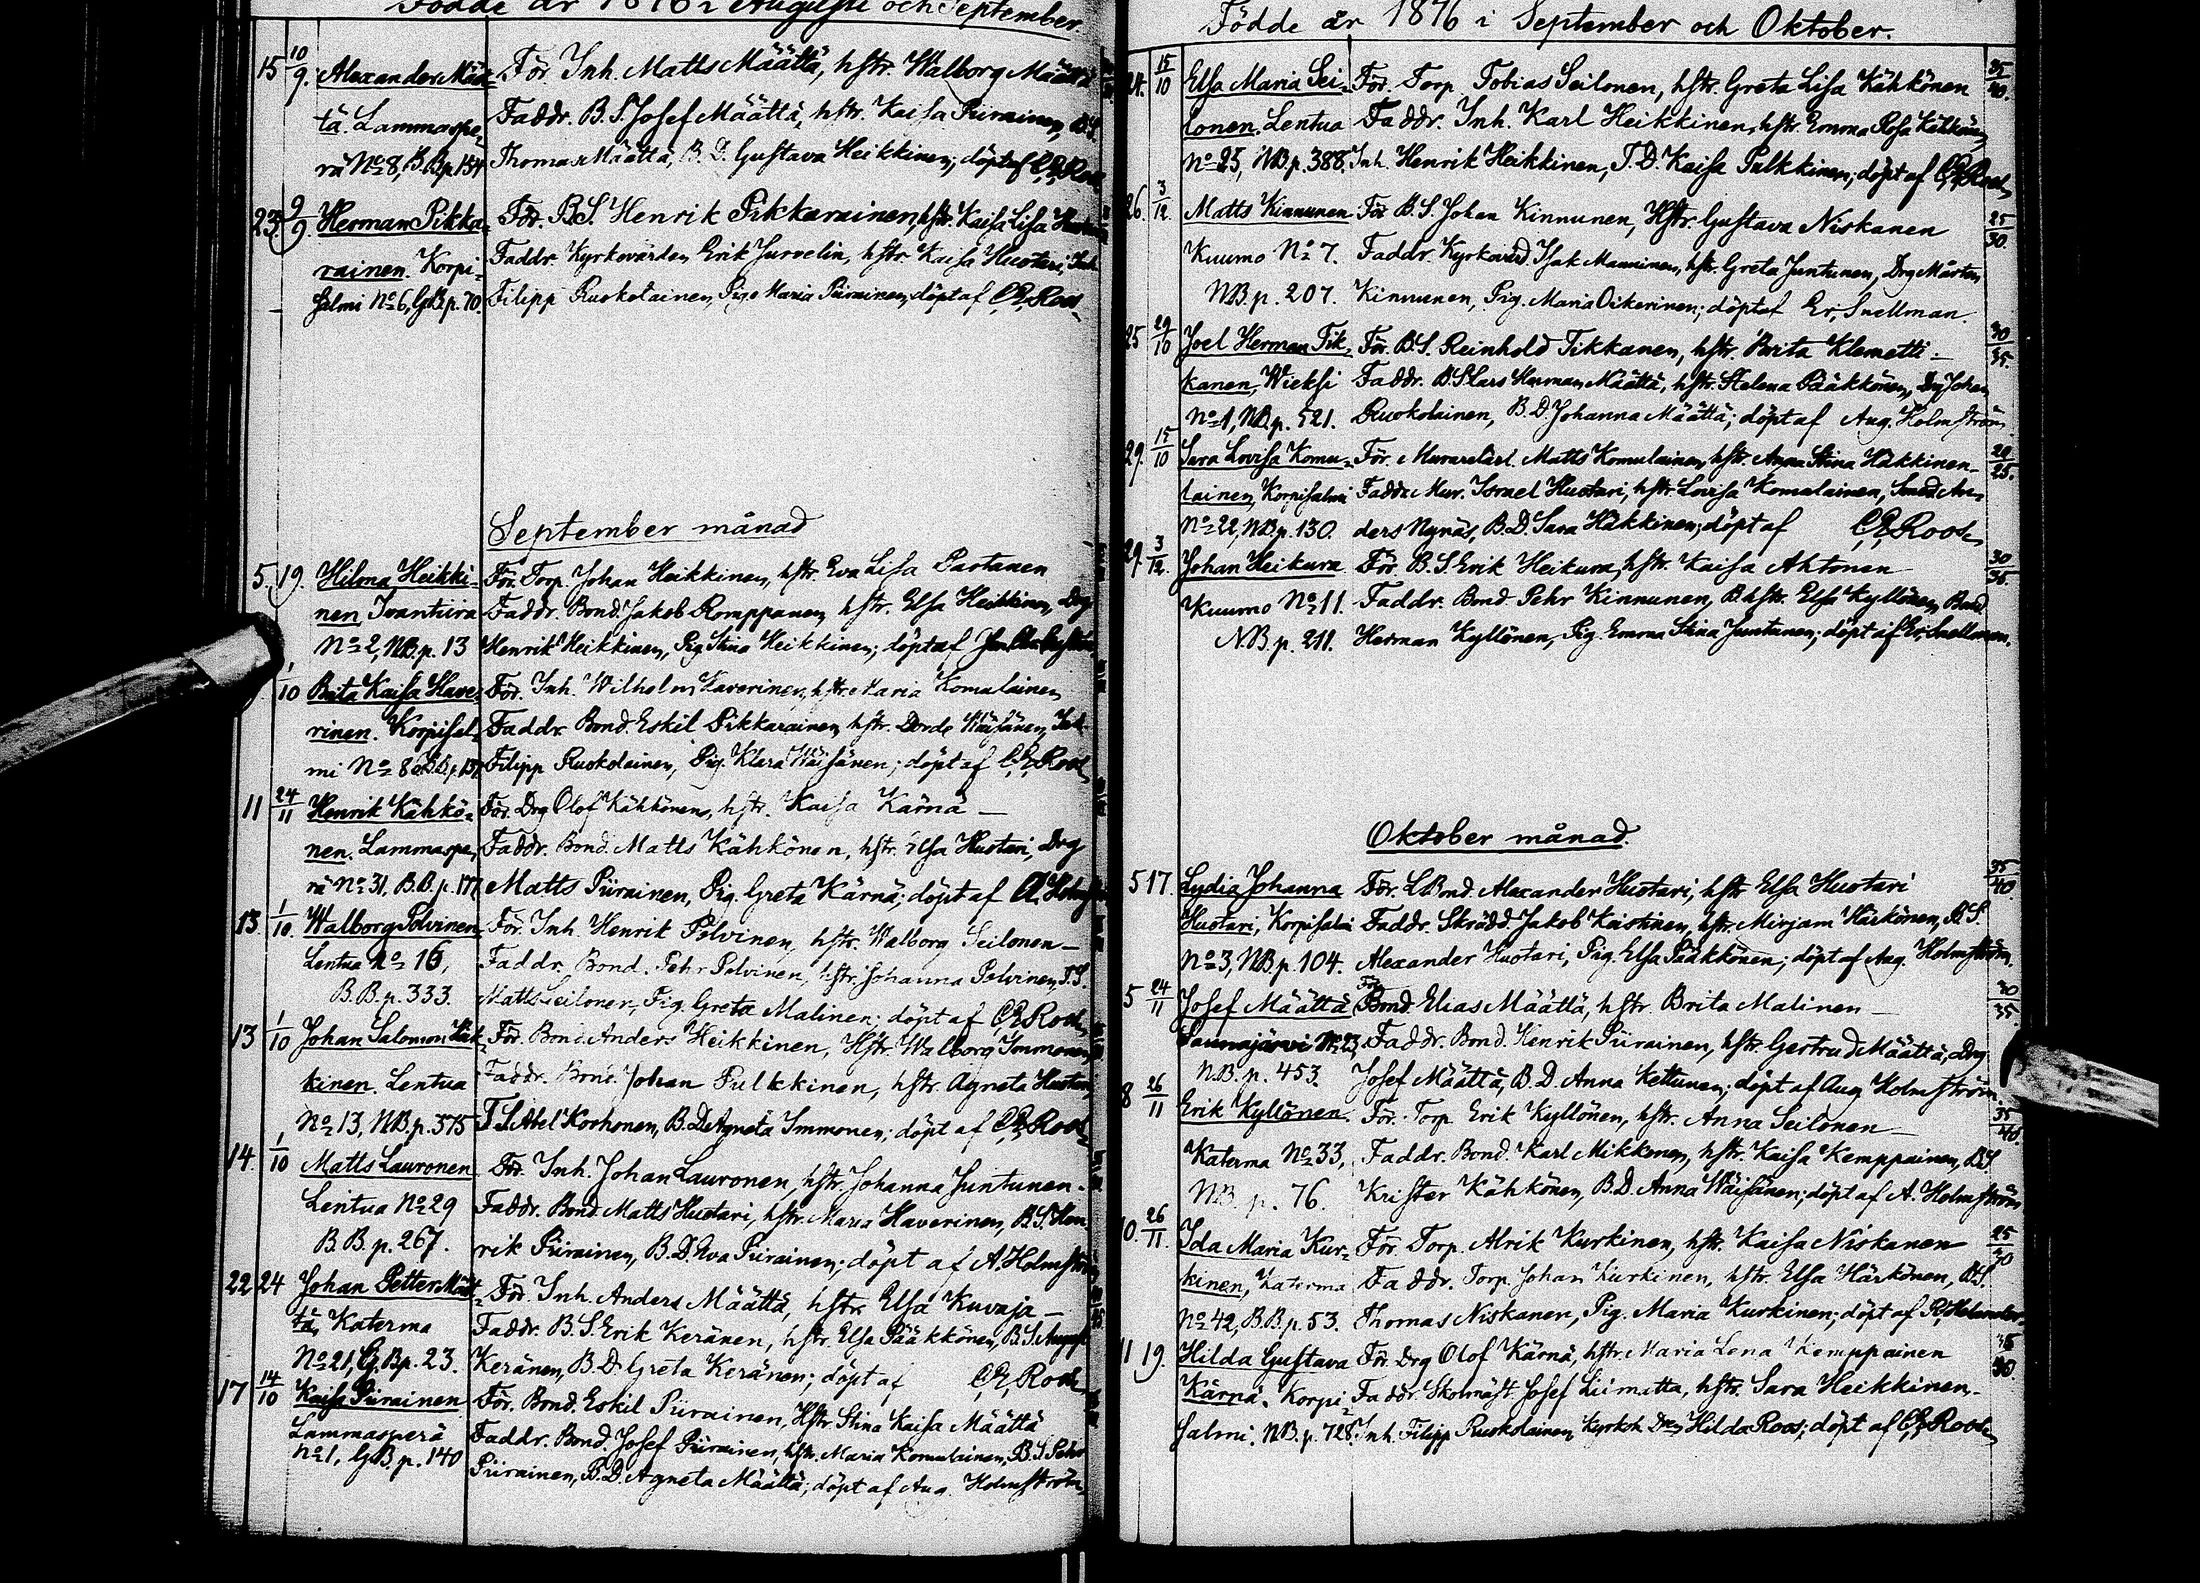 Födde år 1876 i Augusti och September.
15 10/9. Alexander Määt- För. Inh. Matts Määttä, hstr. Walborg Määttä
tä. Lammaspe- Faddr. B.S. Josef Määttä, hstr. Kaisa Piirainen, B.S.
rä No 8, B.B.p. 154 Thomas Määttä, B.D. Gustava Heikkinen; döpt af C.E. Roos
23. 9/9. Herman Pikka- För. B.S. Henrik Pikkarainen, hstr. Kaisa Lisa Huotari
rainen. Korpi- Faddr. Kyrkovärden Erik Jurvelin, hstr. Kaisa Huotari, Inh.
salmi No 6, G.B.p. 70. Filipp Ruokolainen, Piga Maria Piirainen, döpt af C.E. Roos
September månad
5. 19. Hilma Heikki- För. Torp. Johan Heikkinen, hstr. Eva Lisa Partanen
nen Ivantiira Faddr. Bond. Jakob Romppanen, hstr. Elsa Heikkinen, Drg
No 2, NB.p. 13 Henrik Heikkinen, Pig Stina Heikkinen; döpt af
1/10 Brita Kaisa Have- För. Inh. Wilhelm Haverinen, hstr. Maria Komulainen
rinen. Korpisal- Faddr. Bond. Eskil Pikkarainen, hstr. Dorde Wäisänen, Inh.
mi No 8 B.B.p. 137 Filipp Ruokolainen, Pig. Klara Wäisänen; döpt af C.E. Roos
11 24/11 Henrik Kähkö- För. Drg Olof Kähkönen, hstr. Kaisa Kärnä –
nen. Lammaspe- Faddr. Bond. Matts Kähkönen, hstr. Elsa Huotari, Drg
rä No 31. B.B.p. 177. Matts Piirainen, Pig. Greta Kärnä; döpt af A. Holmström
13 1/10. Walborg Polvinen För. Inh. Henrik Polvinen, hstr. Walborg Seilonen –
Lentua No 16, Faddr. Bond. Pehr Polvinen, hstr. Johanna Polvinen, T.S.
B.B.p. 333. Matts Seilonen, Pig. Greta Malinen; döpt af C.E. Roos
13 1/10 Johan Salomon Heik- För. Bond. Anders Heikkinen, Hstr. Walborg Immonen
kinen. Lentua Faddr. Bond. Johan Pulkkinen, hstr. Agneta Huotari
No 13, NB.p. 575 T.S. Abel Korhonen, B.D. Agneta Immonen; döpt af C.E. Roos
14. 1/10 Matts Lauronen För. Inh. Johan Lauronen, hstr. Johanna Juntunen.
Lentua No 29 Faddr. Bond Matts Huotari, hstr. Maria Haverinen, B.S. Hen-
B.B.p. 267. rik Piirainen, B.D. Eva Piirainen; döpt af A. Holmström
22 24 Johan Petter Määt- För. Inh. Anders Määttä, hstr. Elsa Kuvaja –
tä, Katerma Faddr. B.S. Erik Keränen, hstr. Elsa Pääkkönen, B.S. August
No 21, G.B.p. 23. Keränen, B.D. Greta Keränen; döpt af C.E. Roos
17 14/10 Kaisa Piirainen För. Bond. Eskil Piirainen, Hstr Stina Kaisa Määttä
Lammasperä Faddr. Bond. Josef Piirainen, hstr. Maria Komulainen, B.S. Pehr
No 1, G.B.p. 140 Piirainen, B.D. Agneta Määttä; döpt af Aug. Holmström
Födde år 1876 i September och Oktober.
24. 15/10 Elsa Maria Sei- För. Torp. Tobias Seilonen, hstr. Greta Lisa Kähkönen 35/40.
lonen. Lentua Faddr. Inh. Karl Heikkinen, hstr. Emma Rosa Kähkönen
No 25, NB.p. 388. Inh. Henrik Heikkinen, T.D. Kaisa Pulkkinen; döpt af C.E. Roos
26. 3/12. Matts Kinnunen För. B.S. Johan Kinnunen, Hstr. Gustava Niskanen 25/30.
Kuumo No 7. Faddr. Kyrkovärd Isak Manninen, hstr. Greta Juntunen, Drg Mårten
NB.p. 207. Kinnunen, Pig. Maria Oikarinen; döpt af Er. Snellman.
25 29/10 Joel Herman Tik- För. B.S. Reinhold Tikkanen, hstr. Brita Klemetti – 30/35.
kanen, Wieksi Faddr. B.S. Lars Herman Määttä, hstr. Helena Pääkkönen, Drg Johan
No 1, NB.p. 521. Ruokolainen, B.D. Johanna Määttä; döpt af Aug. Holmström
29. 15/10 Sara Lovisa Komu- För. Murarelärl. Matts Komulainen, hstr. Anna Stina Häkkinen – 20/25.
lainen, Korpisalmi Faddr. Mur. Israel Huotari, hstr. Lovisa Komulainen, Smed An-
No 22, NB.p. 130. ders Nynäs, B.D. Sara Häkkinen; döpt af C.E. Roos
29. 3/12. Johan Heikura För. B.S. Erik Heikura, hstr. Kaisa Ahtonen 30/35.
Kuumo No 11. Faddr. Bond. Pehr Kinnunen, B. hstr. Elsa Kyllönen, Bond
N.B.p. 211. Herman Kyllönen, Pig. Emma Stina Juntunen; döpt af Er. Snellman.
Oktober månad.
5 17. Lydia Johanna För. L.Bond. Alexander Huotari, hstr Elsa Huotari 35/40
Huotari, Korpisalmi Faddr. Skrädd. Jakob Kaistinen, hstr. Mirjam Härkönen, B.S.
No 3, NB.p. 104. Alexander Huotari, Pig. Elsa Pääkkönen; döpt af Aug. Holmström.
5 24/11 Josef Määttä För. Bond. Elias Määttä, hstr. Brita Malinen – 30/35.
Saunajärvi No 23, Faddr. Bond. Henrik Piirainen, hstr. Gertrud Määttä, Drg
NB.p. 453. Josef Määttä, B.D. Anna Kettunen; döpt af Aug Holmström.
8 26/11 Erik Kyllönen. För. Torp. Erik Kyllönen, hstr. Anna Seilonen 35/40.
Katerma No 33, Faddr. Bond. Karl Mikkonen, hstr. Kaisa Kemppainen, B.S.
NB.p. 76. Krister Kähkönen, B.D. Anna Wäisänen; döpt af A. Holmström
10. 26/11. Ida Maria Kur- För. Torp. Alrik Kurkinen, hstr. Kaisa Niskanen 25/30
kinen, Katerma Faddr. Torp. Johan Kurkinen, hstr. Elsa Härkönen, B.S.
No 42, B.B.p. 53. Thomas Niskanen, Pig. Maria Kurkinen; döpt af
11 19. Hilda Gustava För. Drg Olof Kärnä, hstr. Maria Lena Kemppainen
Kärnä. Korpi- Faddr. Skolmäst. Josef Liimatta, hstr. Sara Heikkinen,
salmi. NB.p. 728. Inh. Filipp Ruokolainen, Kyrkoh. Dtr Hilda Roos; döpt af C.E. Roos